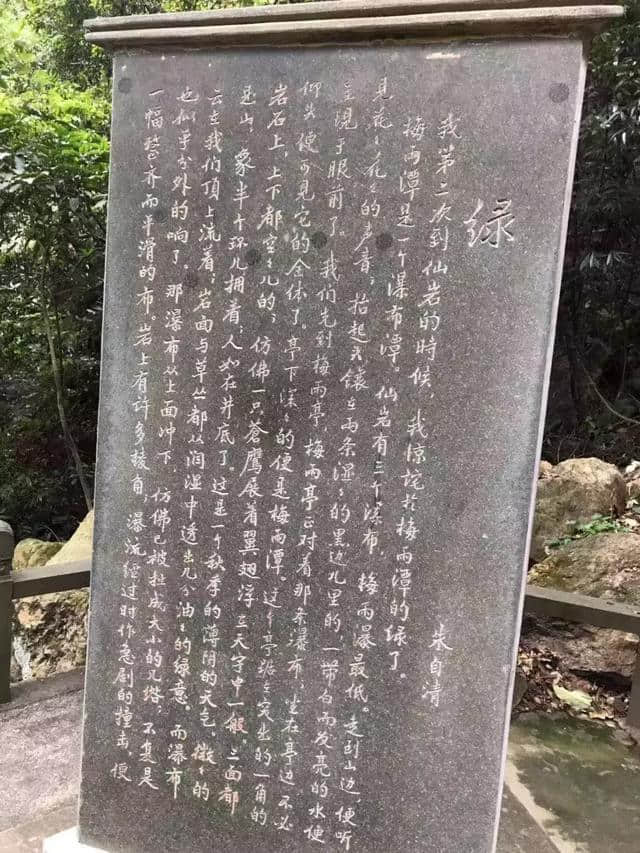 绿
朱自清
我第二次到仙岩的時候，我惊诧於梅雨潭的绿了。
梅雨潭是一个瀑布潭。仙岩有三个瀑布，梅雨瀑最低。走到山边，便听
見花々花々的声音；抬起头，镶在两条湿々的黑边儿里的，一带白而发亮的水便
呈現于眼前了。我们先到梅雨亭，梅雨亭正对着那条瀑布；坐在亭边，不必
仰头，便可見它的全体了。亭下深々的便是梅雨潭。这个亭踞在突出的一角的
岩石上，上下都空々儿的；仿佛一只蒼鹰展着翼翅浮在天宇中一般。三面都
是山，象半个环儿拥着；人如在井底了。这是一个秋季的薄阴的天气。微々的
云在我们顶上流着；岩面与草丛都从润湿中透出几分油々的绿意。而瀑布
也似乎分外的响了。那瀑布从上面冲下，仿佛已被扯成大小的几绺；不复是
一幅整齐而平滑的布。岩上有许多棱角；瀑流经过时，作急剧的撞击，便